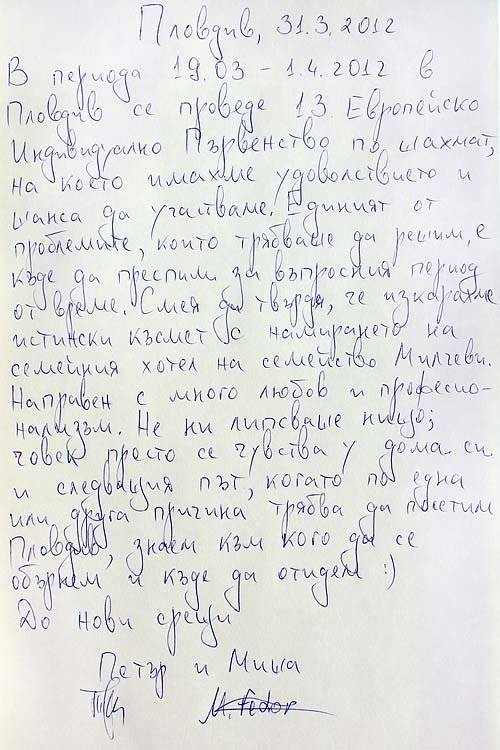 Пловдив, 31.3.2012
В периода 19.03 – 1.4.2012 в
Пловдив се проведе 13. Европейско
Индивидуално Първенство по шахмат,
на което имахме удоволствието и
шанса да участваме. Единият от
проблемите, които трябваше да решим, е
къде да преспим за въпросния период
от време. Смея да твърдя, че изкарахме
истински късмет с намирането на
семейния хотел на семейство Милчеви.
Направен с много любов и професио-
нализъм. Не ни липсваше нищо;
човек просто се чувства у дома си
и следващия път, когато по една
или друга причина трябва да посетим
Пловдив, знаем към кого да се
обърнем и къде да отидем :)
До нови срещи
Петър и Миша
M. Fedor